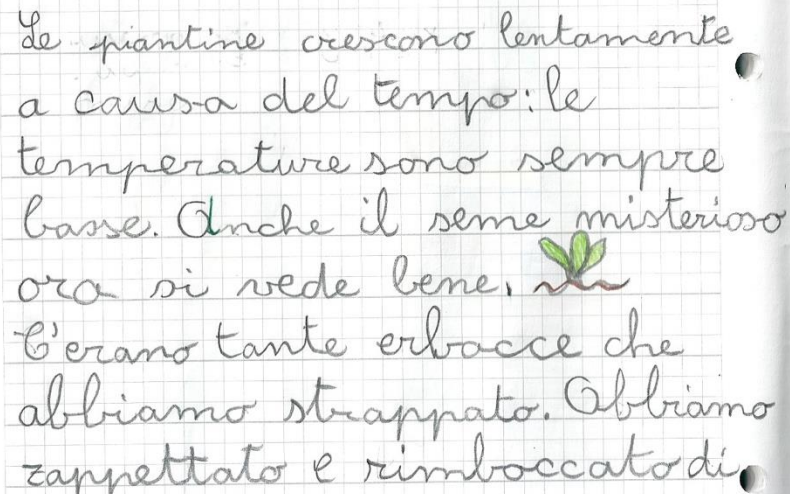 Le piantine crescono lentamente
a causa del tempo: le
temperature sono sempre
basse. Anche il seme misterioso
ora si vede bene.
C'erano tante erbacce che
abbiamo strappato. Abbiamo
zappettato e rimboccato di